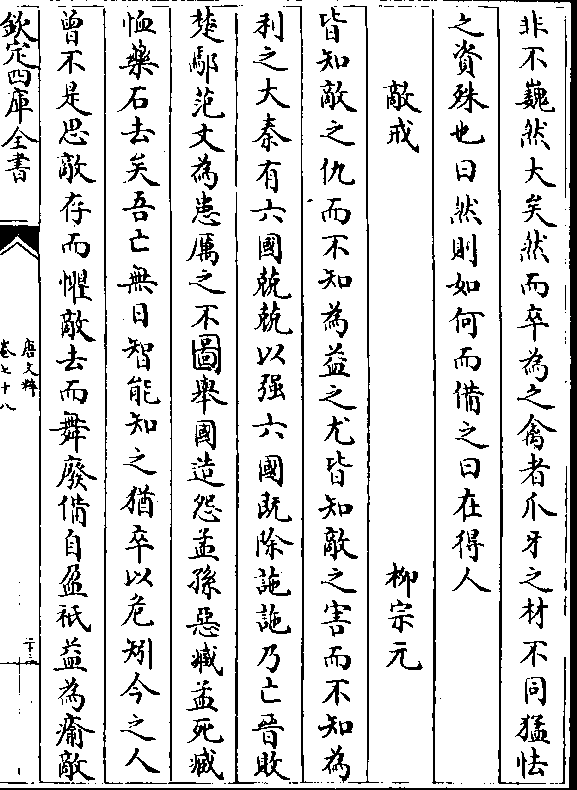 非不巍然大矣然而卒為之禽者爪牙之材不同猛怯
之資殊也曰然則如何而備之曰在得人
敵戒 柳宗元
皆知敵之仇而不知為益之尤皆知敵之害而不知為
利之大秦有六國兢兢以强六國既除訑訑乃亡晉敗
楚鄢范文為患厲之不圖舉國造怨孟孫惡臧孟死臧
恤藥石去矣吾亡無日智能知之猶卒以危矧今之人
曾不是思敵存而懼敵去而舞廢備自盈祗益為瘉敵
欽定四庫全書
唐文粹
卷七十八